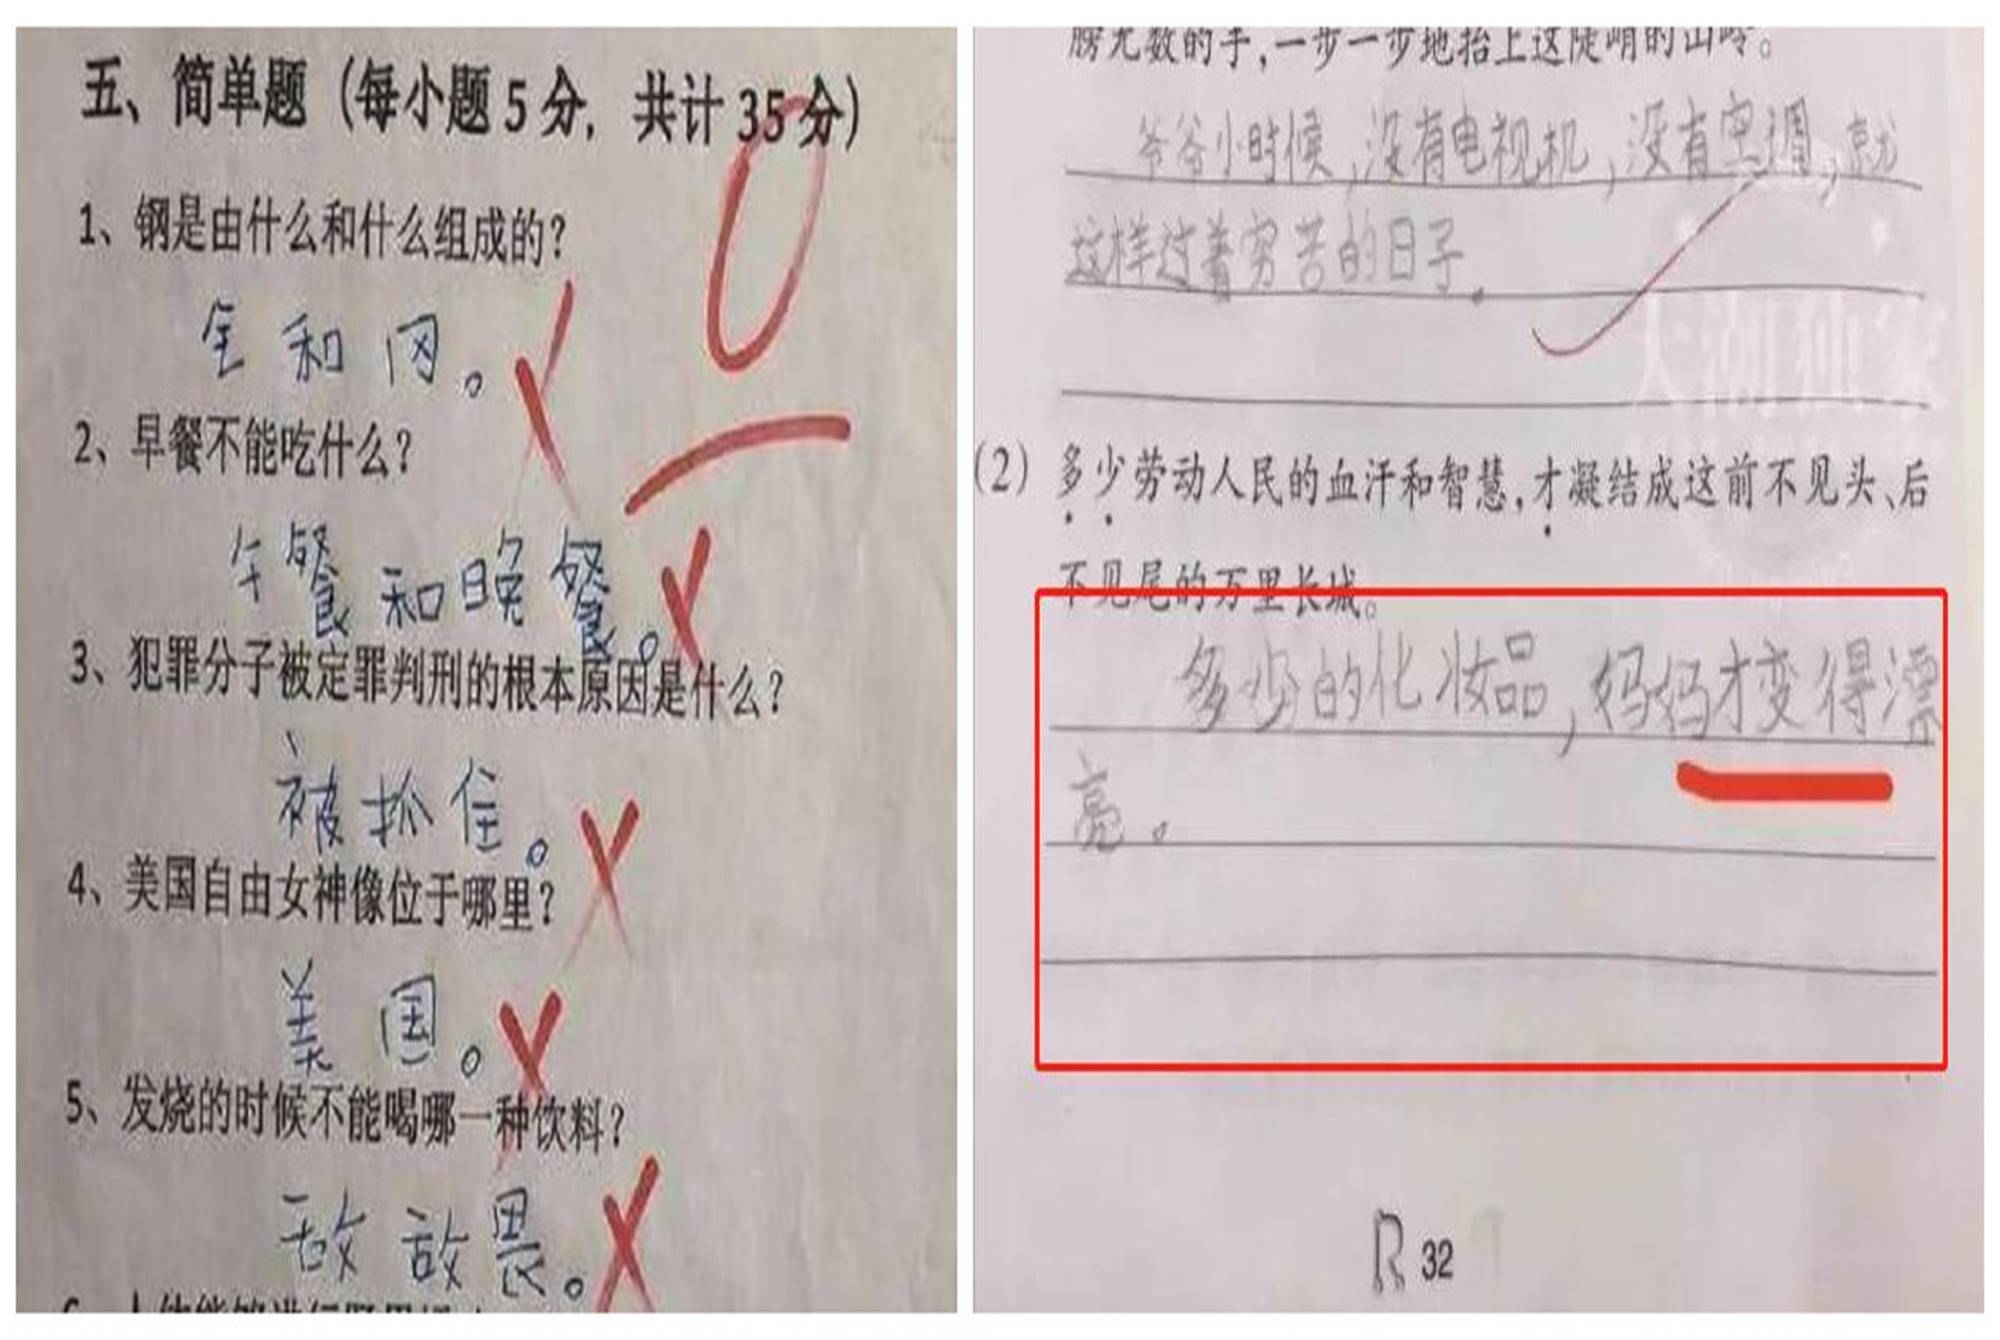 五、简单题（每小题5分，共计35分）
0
1、钢是由什么和什么组成的？
钅和冈。
2、早餐不能吃什么？
午餐和晚餐。
3、犯罪分子被定罪判刑的根本原因是什么？
被抓住。
4、美国自由女神像位于哪里？
美国。
5、发烧的时候不能喝哪一种饮料？
敌敌畏。
膀无数的手，一步一步地抬上这陡峭的山岭。
爷爷小时候，没有电视机，没有空调，就
这样过着穷苦的日子。
(2) 多少劳动人民的血汗和智慧，才凝结成这前不见头、后
不见尾的万里长城。
多少的化妆品，妈妈才变得漂
亮。
R 32